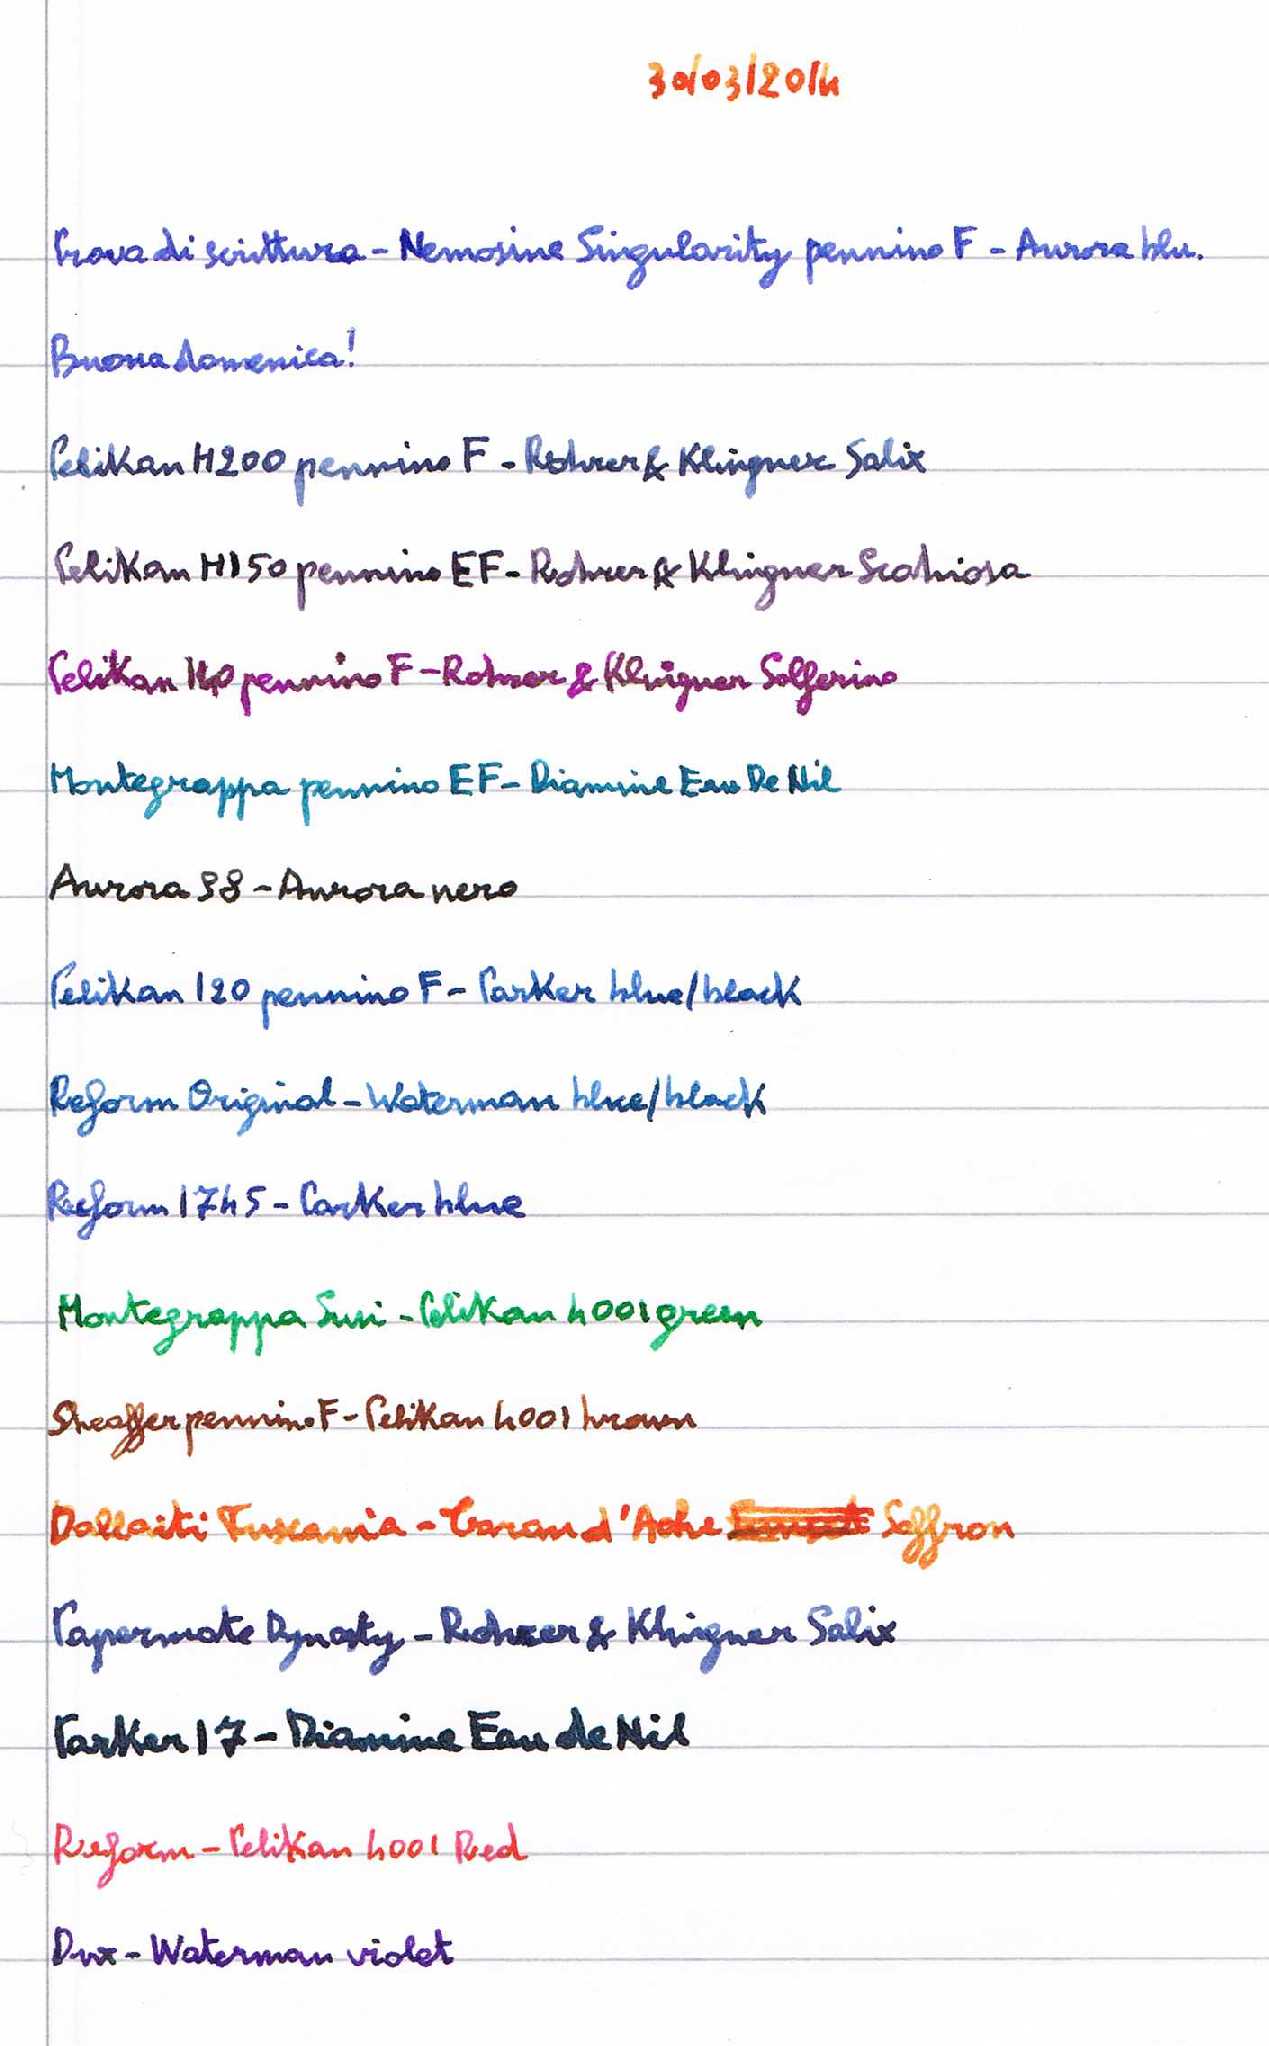 30/03/2014
Prova di scrittura - Nemosine Singularity pennino F - Aurora blu.
Buona domenica!
Pelikan M200 pennino F - Rohrer & Klingner Salix
Pelikan M150 pennino EF - Rohrer & Klingner Scabiosa
Pelikan 140 pennino F - Rohrer & Klingner Solferino
Montegrappa pennino EF - Diamine Eau De Nil
Aurora 98 - Aurora nero
Pelikan 120 pennino F - Parker blue/black
Reform Original - Waterman blue/black
Reform 1745 - Parker blue
Montegrappa Susi - Pelikan 4001 green
Sheaffer pennino F - Pelikan 4001 brown
Dallaiti Tuscania - Caran d'Ache Saffron
Papermate Dynasty - Rohrer & Klingner Salix
Parker 17 - Diamine Eau de Nil
Reform - Pelikan 4001 Red
Dux - Waterman violet